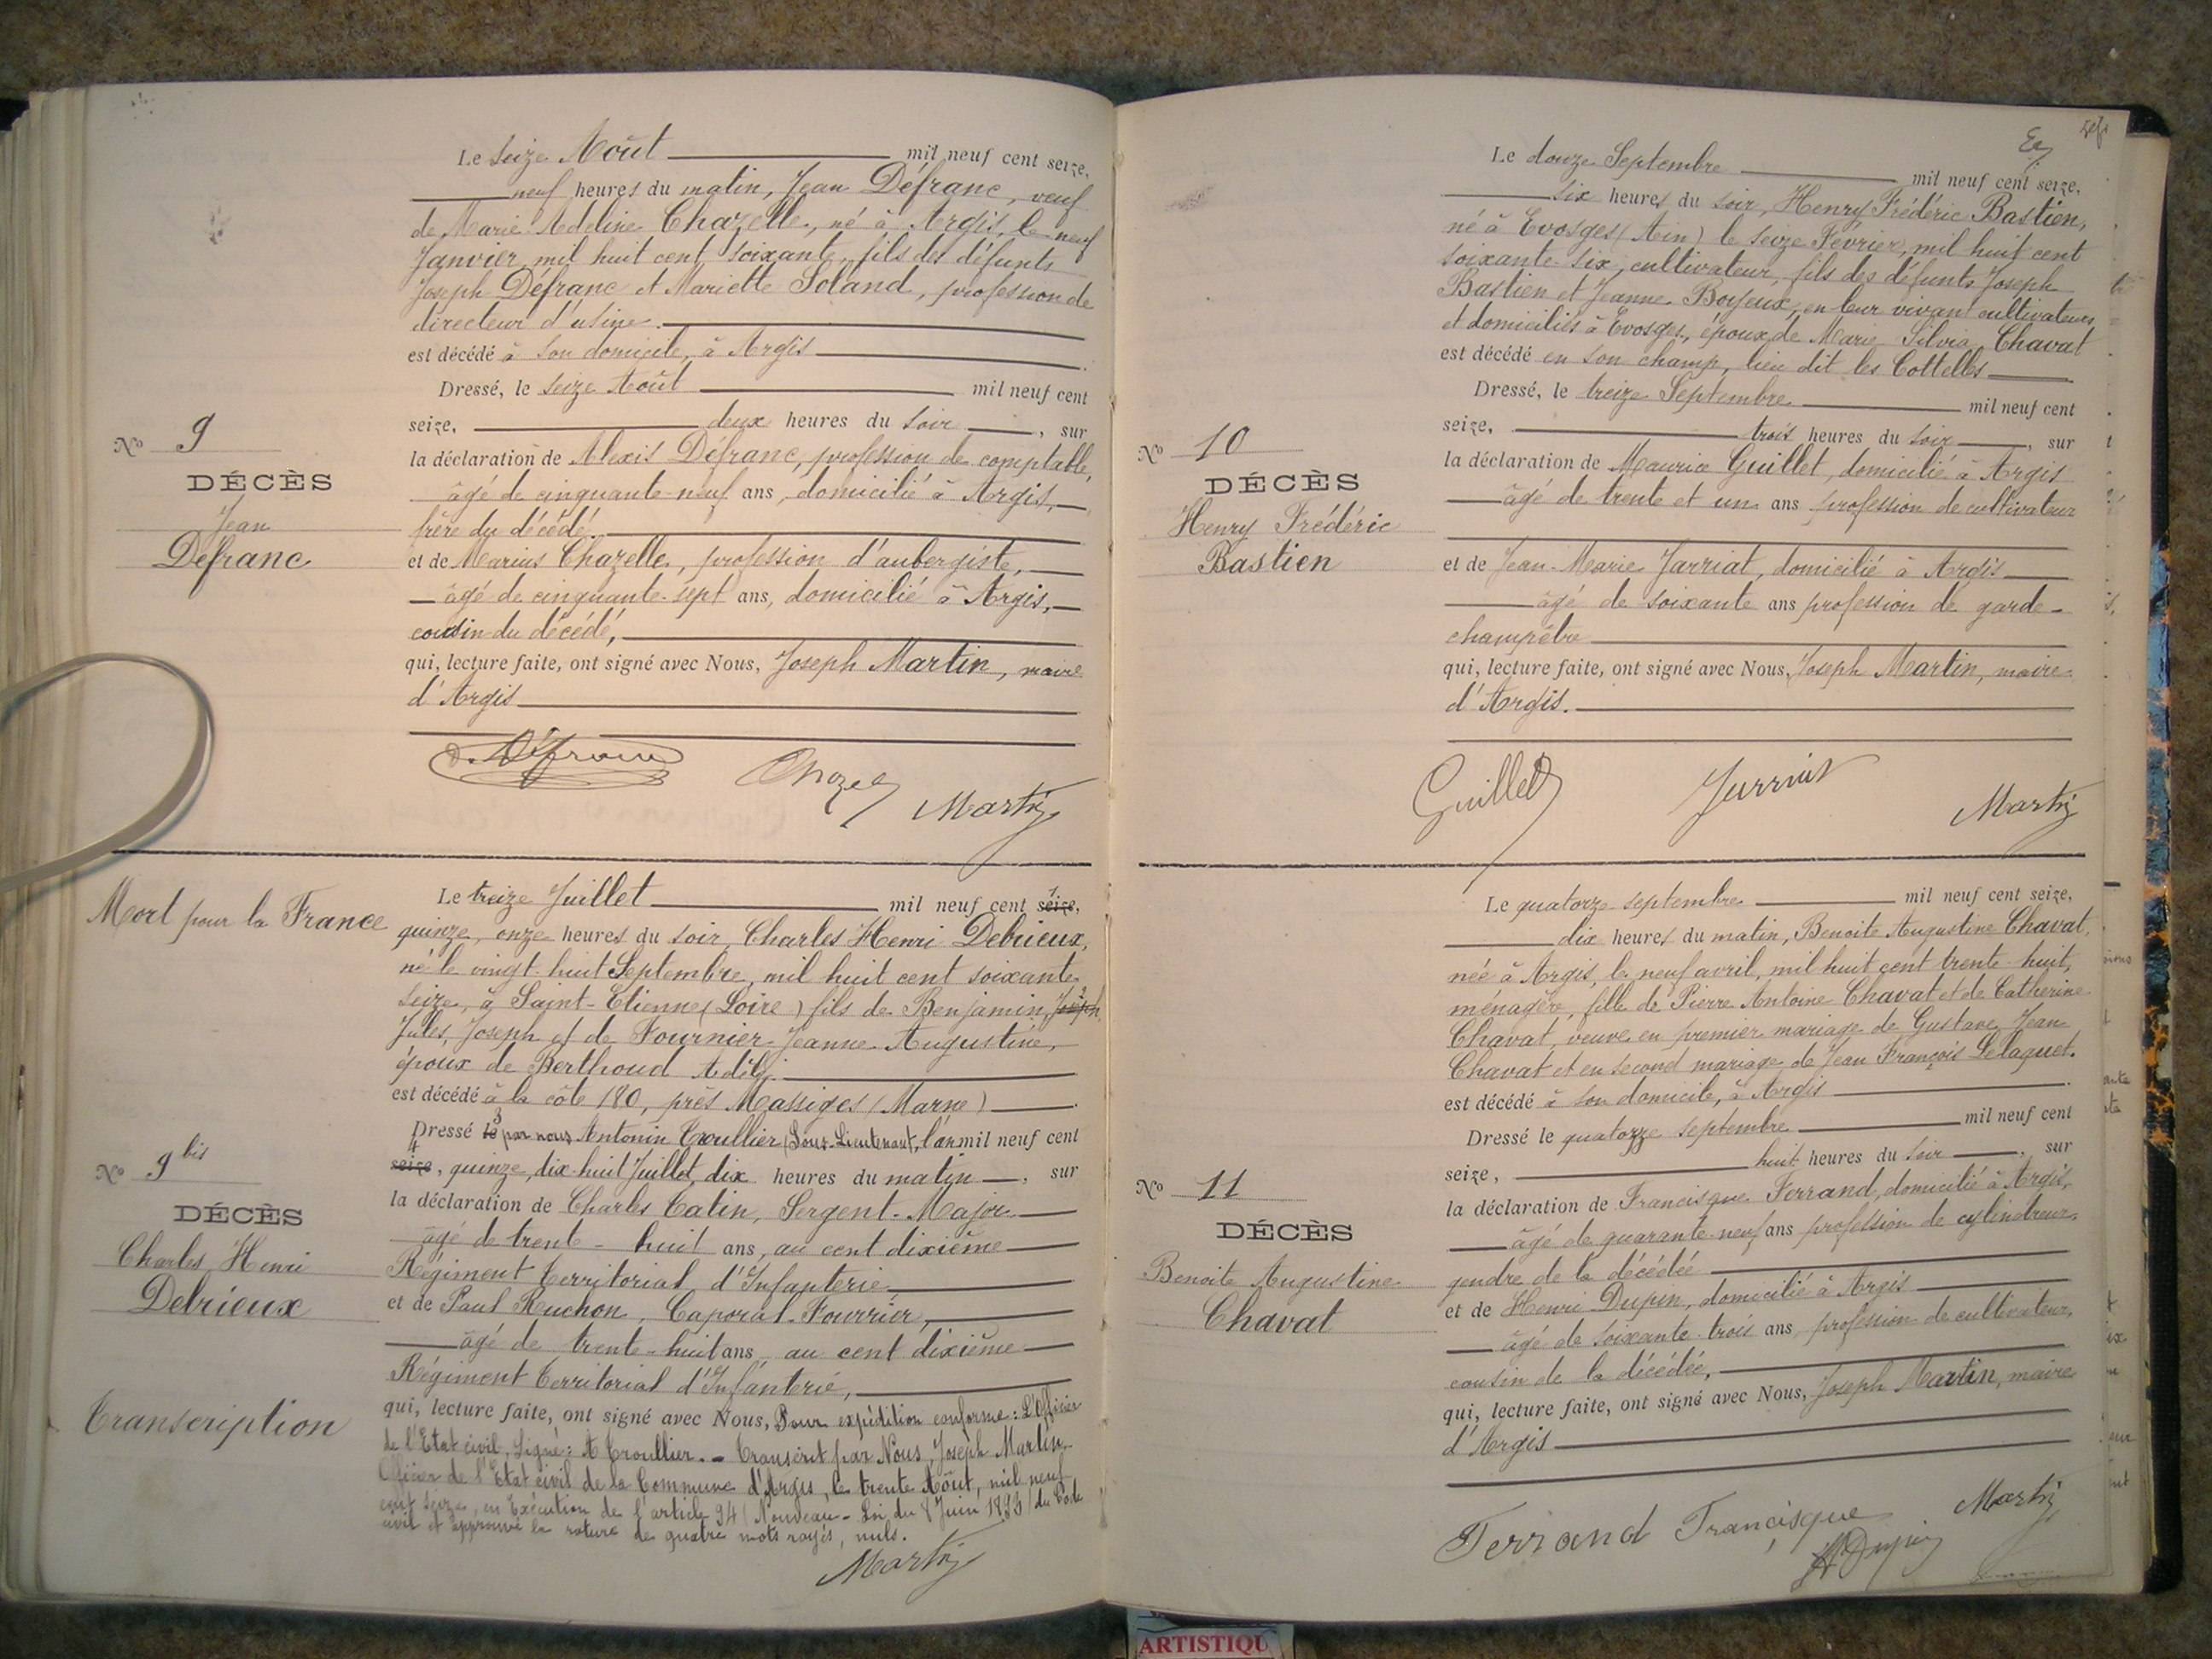 Le seize Août mil neuf cent seize,
neuf heures du matin, Jean Défranc, veuf
de Marie Adeline Chazelle, né à Argis, le neuf
Janvier mil huit cent soixante, fils des défunts
Joseph Défranc et Mariette Soland, profession de
directeur d'usine.
est décédé à son domicile, à Argis
Dressé, le seize Août mil neuf cent
seize, deux heures du soir, sur
la déclaration de Alexis Défranc, profession de comptable,
âgé de cinquante-neuf ans, domicilié à Argis,
frère du décédé.
et de Marius Chazelle, profession d'aubergiste,
âgé de cinquante-sept ans, domicilié à Argis,
cousin du décédé,
qui, lecture faite, ont signé avec Nous, Joseph Martin, maire
d'Argis
No 9
DÉCÈS
Jean
Défranc
Défranc Martin
Mort pour la France
Le treize Juillet mil neuf cent seize, 1
quinze, onze heures du soir, Charles Henri Debrieux,
né le vingt-huit Septembre, mil huit cent soixante
seize, à Saint-Etienne (Loire) fils de Benjamin, Joseph 2
Jules, Joseph et de Fournier Jeanne Augustine,
époux de Berthoud Adèle
est décédé à la côte 180, près Massiges (Marne)
Dressé le 3 par nous Antonin Croullier, Sous-Lieutenant, l'an mil neuf cent
4 seize, quinze, dix-huit Juillet, dix heures du matin, sur
la déclaration de Charles Catin, Sergent-Major
âgé de trente-huit ans, au cent dixième
Régiment Territorial d'Infanterie
et de Paul Ruchon, Caporal-Fourrier,
âgé de trente-huit ans au cent dixième
Régiment Territorial d'Infanterie,
qui, lecture faite, ont signé avec Nous, Pour expédition conforme: L'Officier
de l'Etat civil, Signé: A Croullier. - Transcrit par Nous, Joseph Martin
Officier de l'Etat civil de la Commune d'Argis, le trente Août, mil neuf
cent seize, en Exécution de l'article 94 (Nouveau - Loi du 8 Juin 1893) du Code
civil et approuvé la rature de quatre mots rayés, nuls.
Martin
No 9 bis
DÉCÈS
Charles Henri
Debrieux
Transcription
Le douze Septembre mil neuf cent seize,
six heures du soir, Henry Frédéric Bastien,
né à Evosges (Ain) le seize Février, mil huit cent
soixante-six, cultivateur, fils des défunts Joseph
Bastien et Jeanne Boyeux, en leur vivant cultivateurs
et domiciliés à Evosges, époux de Marie Silvia Chavat
est décédé en son champ, lieu dit les Cottelles
Dressé, le treize Septembre mil neuf cent
seize, trois heures du soir, sur
la déclaration de Maurice Guillet, domicilié à Argis
âgé de trente et un ans profession de cultivateur
et de Jean-Marie Jarriat, domicilié à Argis
âgé de soixante ans profession de garde-
champêtre
qui, lecture faite, ont signé avec Nous, Joseph Martin, maire
d'Argis.
No 10
DÉCÈS
Henry Frédéric
Bastien
Guillet Jarriat Martin
Le quatorze septembre mil neuf cent seize,
dix heures du matin, Benoite Augustine Chavat,
née à Argis, le neuf avril, mil huit cent trente-huit,
ménagère, fille de Pierre Antoine Chavat et de Catherine
Chavat, veuve en premier mariage de Gustave Jean
Chavat et en second mariage de Jean François Lelaquet.
est décédé à son domicile, à Argis
Dressé le quatorze septembre mil neuf cent
seize, huit heures du soir, sur
la déclaration de Francisque Ferrand, domicilié à Argis,
âgé de quarante-neuf ans profession de cylindreur,
gendre de la décédée
et de Henri Dupin, domicilié à Argis
âgé de soixante-trois ans, profession de cultivateur,
cousin de la décédée,
qui, lecture faite, ont signé avec Nous, Joseph Martin, maire
d'Argis
No 11
DÉCÈS
Benoite Augustine
Chavat
Ferrand Francisque HDupin Martin
ARTISTIQU